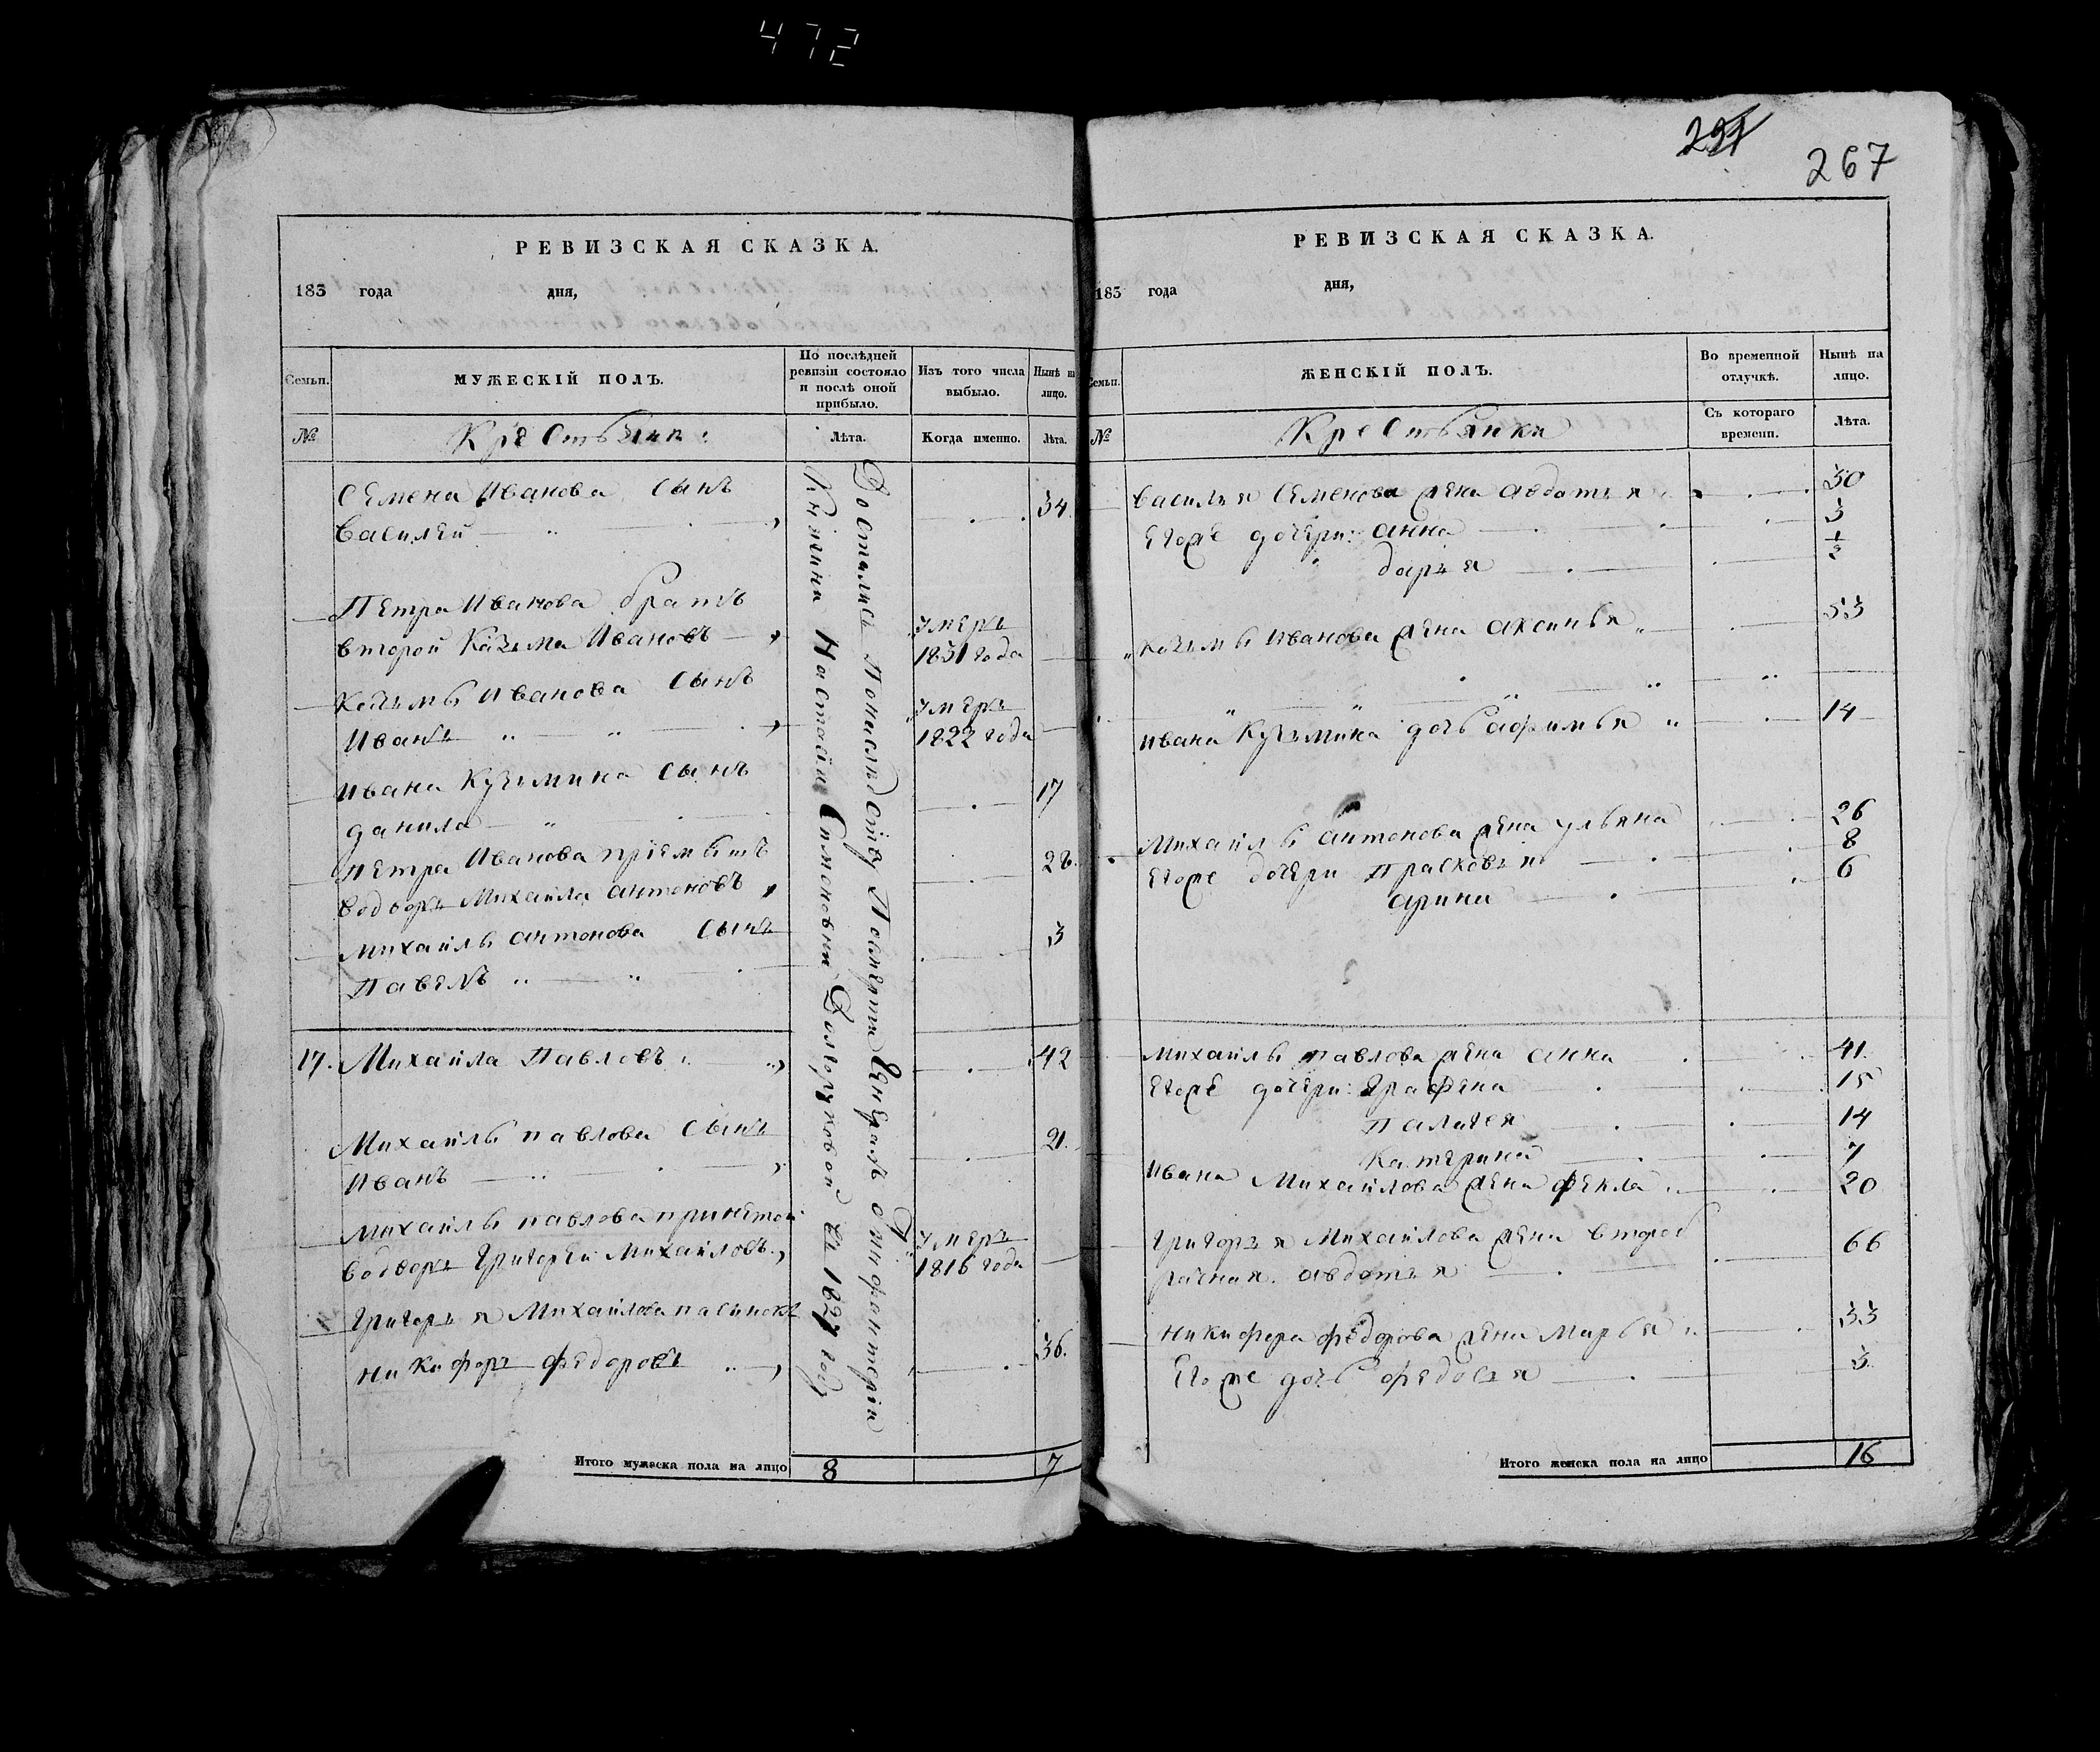 472
291
267
РЕВИЗСКАЯ СКАЗКА.
183 года дня,
Семьи.
МУЖЕСКІЙ ПОЛЪ.
По послѣдней ревизіи состояло и послѣ оной прибыло.
Изъ того числа выбыло.
Нынѣ на лицо.
№
Крестьяне:
Лѣта.
Когда именно.
Лѣта.
Семена Иванова сынъ
Василей 34.
Петра Иванова братъ
второй Козьма Ивановъ умеръ 1831 года
Козьмы Иванова сынъ
Иванъ умеръ 1822 года
Ивана Кузьмина сынъ
данила 17
Петра Иванова пріемышъ 28.
водворъ Михайла антоновъ
Михайлы антонова сынъ 3
Павелъ
17. Михайла Павловъ 42
Михайлы павлова сынъ 21.
Иванъ
Михайлы павлова принятой
водворъ Григорей Михайловъ умеръ 1816 года
Григорья Михайлова пасынокъ
Никифоръ Федоровъ 36.
Достались Понаследству Посмерти Генералъ отъ инфантеріи
Княгини Настасіи Симоновны Долгоруковой въ 1827 году
Итого мужеска пола на лицо 8 7
РЕВИЗСКАЯ СКАЗКА.
183 года дня,
Семьи.
ЖЕНСКІЙ ПОЛЪ.
Во временной отлучкѣ.
Нынѣ на лицо.
№
Крестьянки
Съ котораго времени.
Лѣта.
Василья Семенова жена авдотья 30
Егоже дочери: анна 3
дарья 1/2
Козьмы Иванова жена аксинья 53
Ивана Кузьмина дочь афимья 14
Михайлы антонова жена ульяна 26
Егоже дочери Прасковья 8
арина 6
Михайлы павлова жена анна 41.
Егоже дочери: Графена 15
Палагея 14
Катерина 7
Ивана Михайлова жена фекла 20
Григорья Михайлова жена второ
рачная авдотья 66
Никифора федорова жена Марья 33
Егоже дочь федосья 3
Итого женска пола на лицо 16